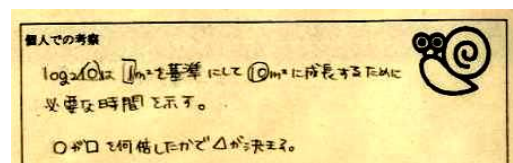 個人での考察
log₂⑩は 1m²を基準にして ⑩m²に成長するために
必要な時間を示す。
○が□を何倍したかで△が決まる。